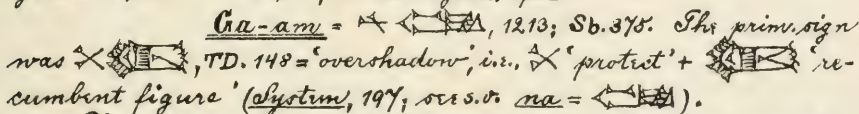 Ga-am = 1213; Sb. 375. The prim. sign
was , TD. 148 = 'overshadow', i.e., 'protect' + 're-
cumbent figure' (System, 197; see s.v. na = ).